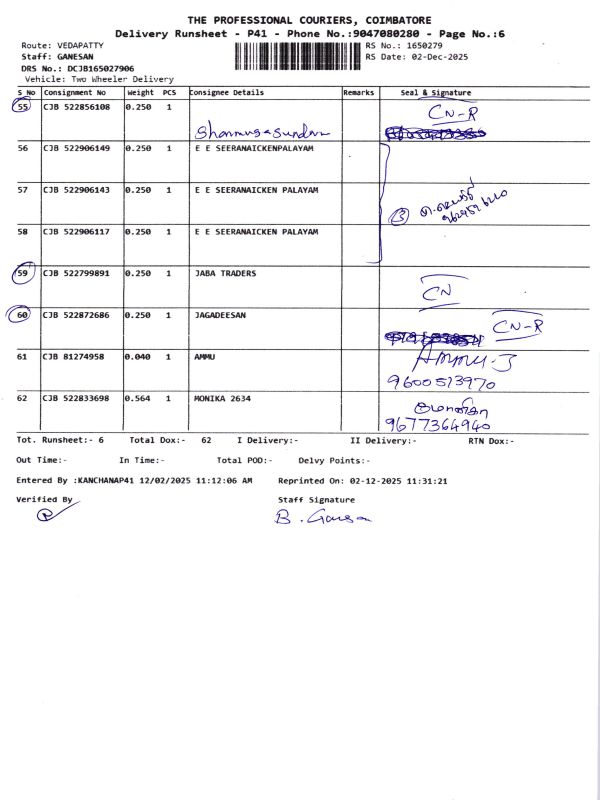 THE PROFESSIONAL COURIERS, COIMBATORE
Delivery Runsheet - P41 - Phone No.:9047080280 - Page No.:6
Route: VEDAPATTY RS No.: 1650279
Staff: GANESAN RS Date: 02-Dec-2025
DRS No.: DCJB165027906
Vehicle: Two Wheeler Delivery
S No Consignment No Weight PCS Consignee Details Remarks Seal & Signature
55 CJB 522856108 0.250 1 CN-R
56 CJB 522906149 0.250 1 E E SEERANAICKENPALAYAM
57 CJB 522906143 0.250 1 E E SEERANAICKEN PALAYAM
3
58 CJB 522906117 0.250 1 E E SEERANAICKEN PALAYAM
59 CJB 522799891 0.250 1 JABA TRADERS CN
60 CJB 522872686 0.250 1 JAGADEESAN CN-R
61 CJB 81274958 0.040 1 AMMU Ammu-J
9600513970
62 CJB 522833698 0.564 1 MONIKA 2634
9677364940
Tot. Runsheet:- 6 Total Dox:- 62 I Delivery:- II Delivery:- RTN Dox:-
Out Time:- In Time:- Total POD:- Delvy Points:-
Entered By :KANCHANAP41 12/02/2025 11:12:06 AM Reprinted On: 02-12-2025 11:31:21
Verified By Staff Signature